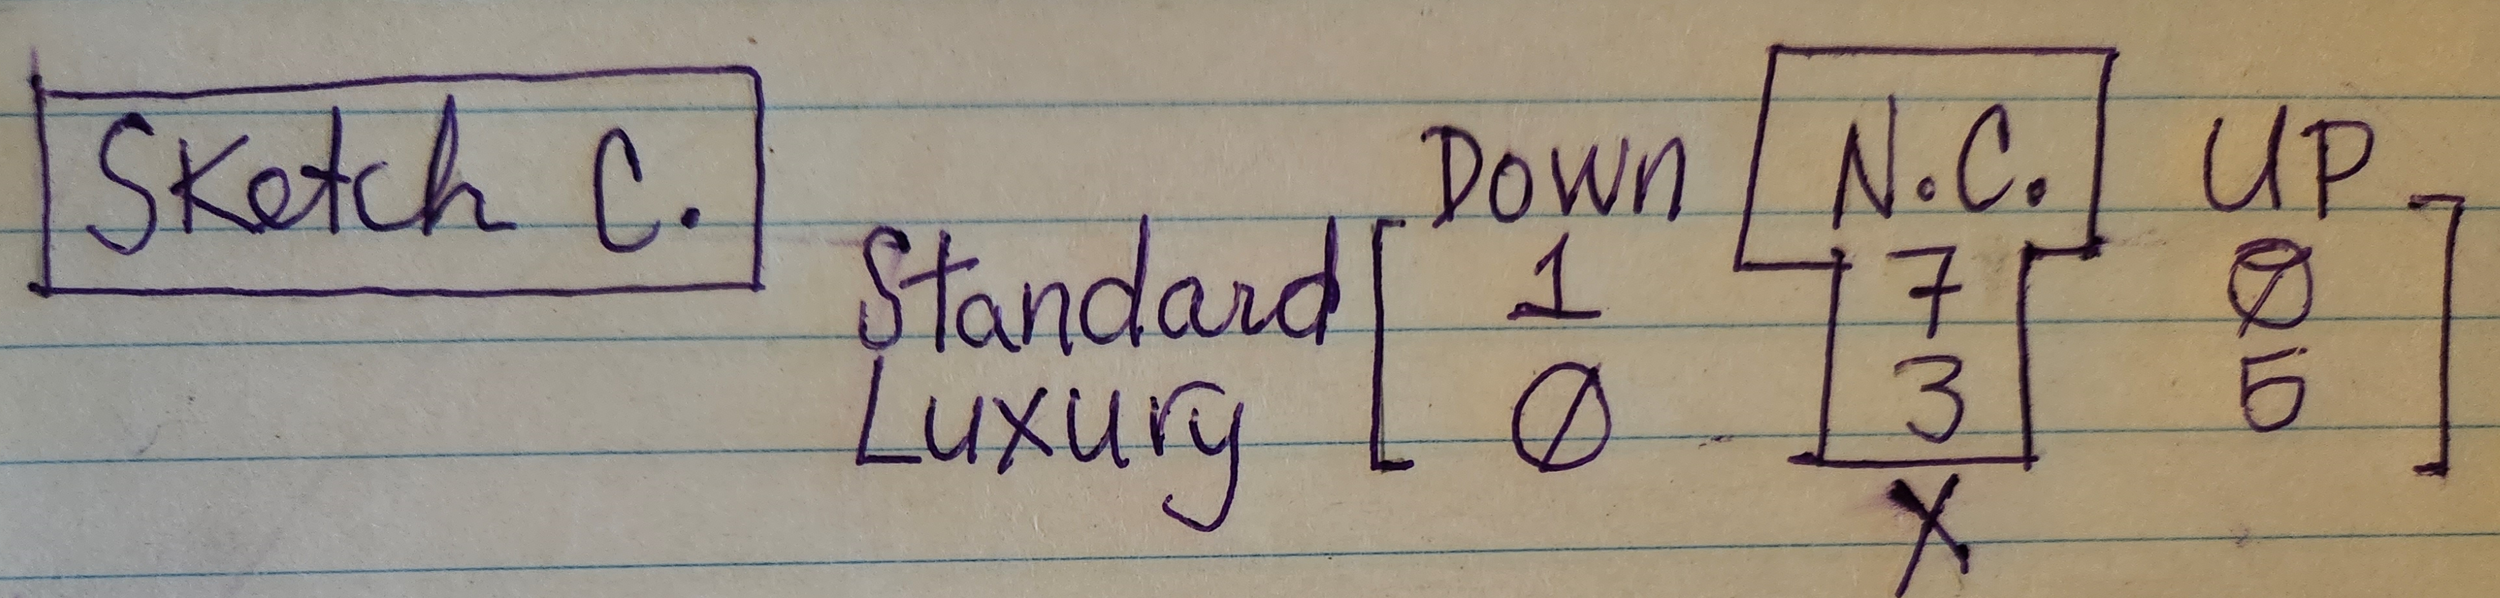 Sketch C.
Down N.C. UP
Standard [ 1 7 0 ]
Luxury [ 0 3 5 ]
X